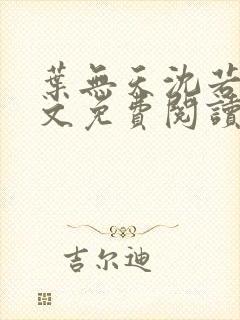 葉無天沈若
文免費閱讀
吉尔迪